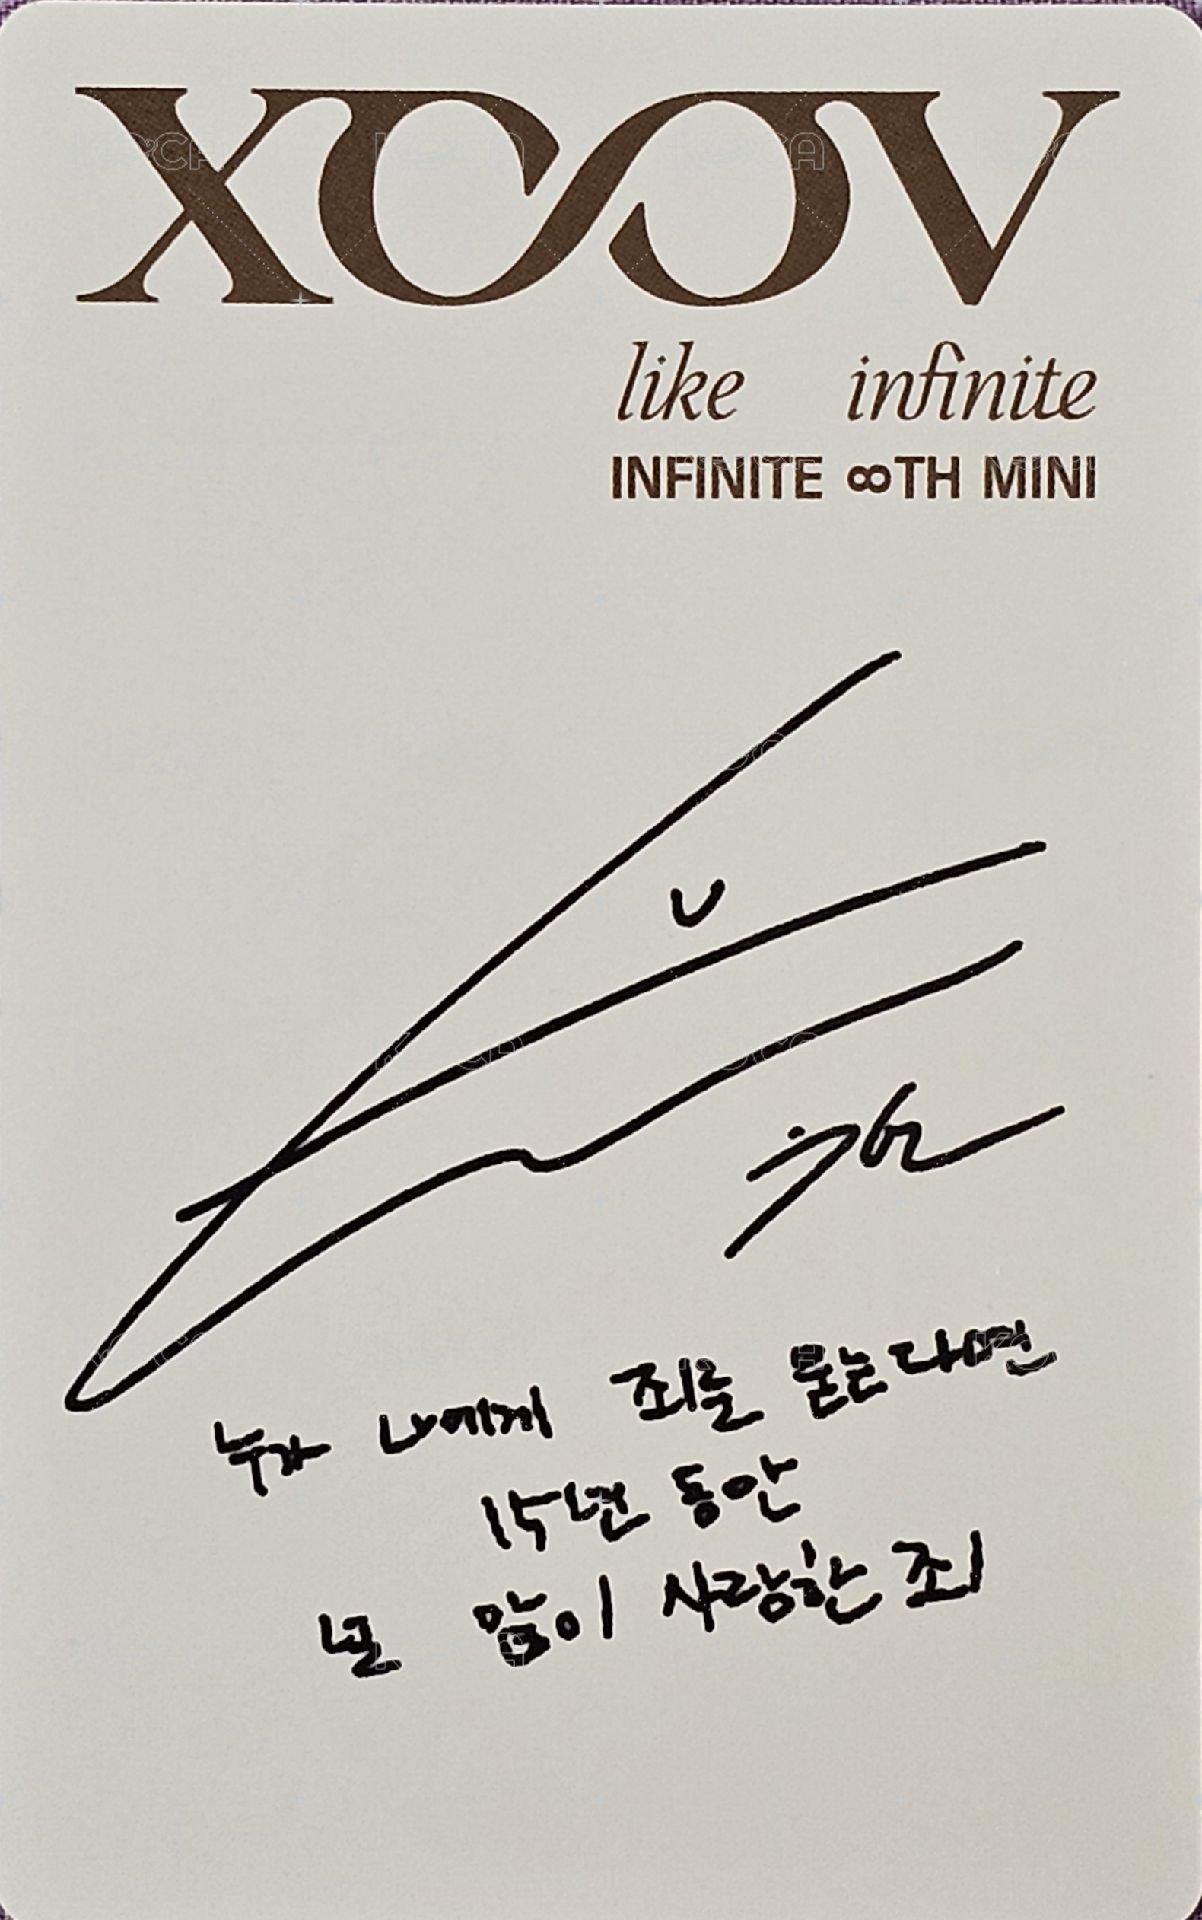 XOOV
like infinite
INFINITE ∞TH MINI
누가 나에게 죄를 묻는다면
15년 동안
널 많이 사랑한 죄